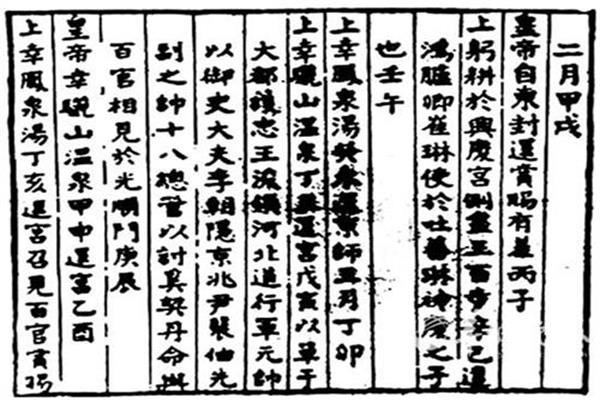 二月甲戌
皇帝自東封還賞賜有差丙子
上躬耕於興慶宮側盡三百步辛己還
鴻臚卿崔琳使於吐蕃琳神慶之子
也壬午
上幸鳳泉湯 還京師 月丁卯
上幸驪山溫泉丁 還宮戊寅以單于
大都護忠王浚領河北道行軍元帥
以御史大夫李朝隱京兆尹裴伷先
副之帥十八總管以討奚契丹命與
百官相見於光順門庚辰
皇帝幸驪山溫泉甲申還宮乙酉
上幸鳳泉湯丁亥還宮召見百官賞賜